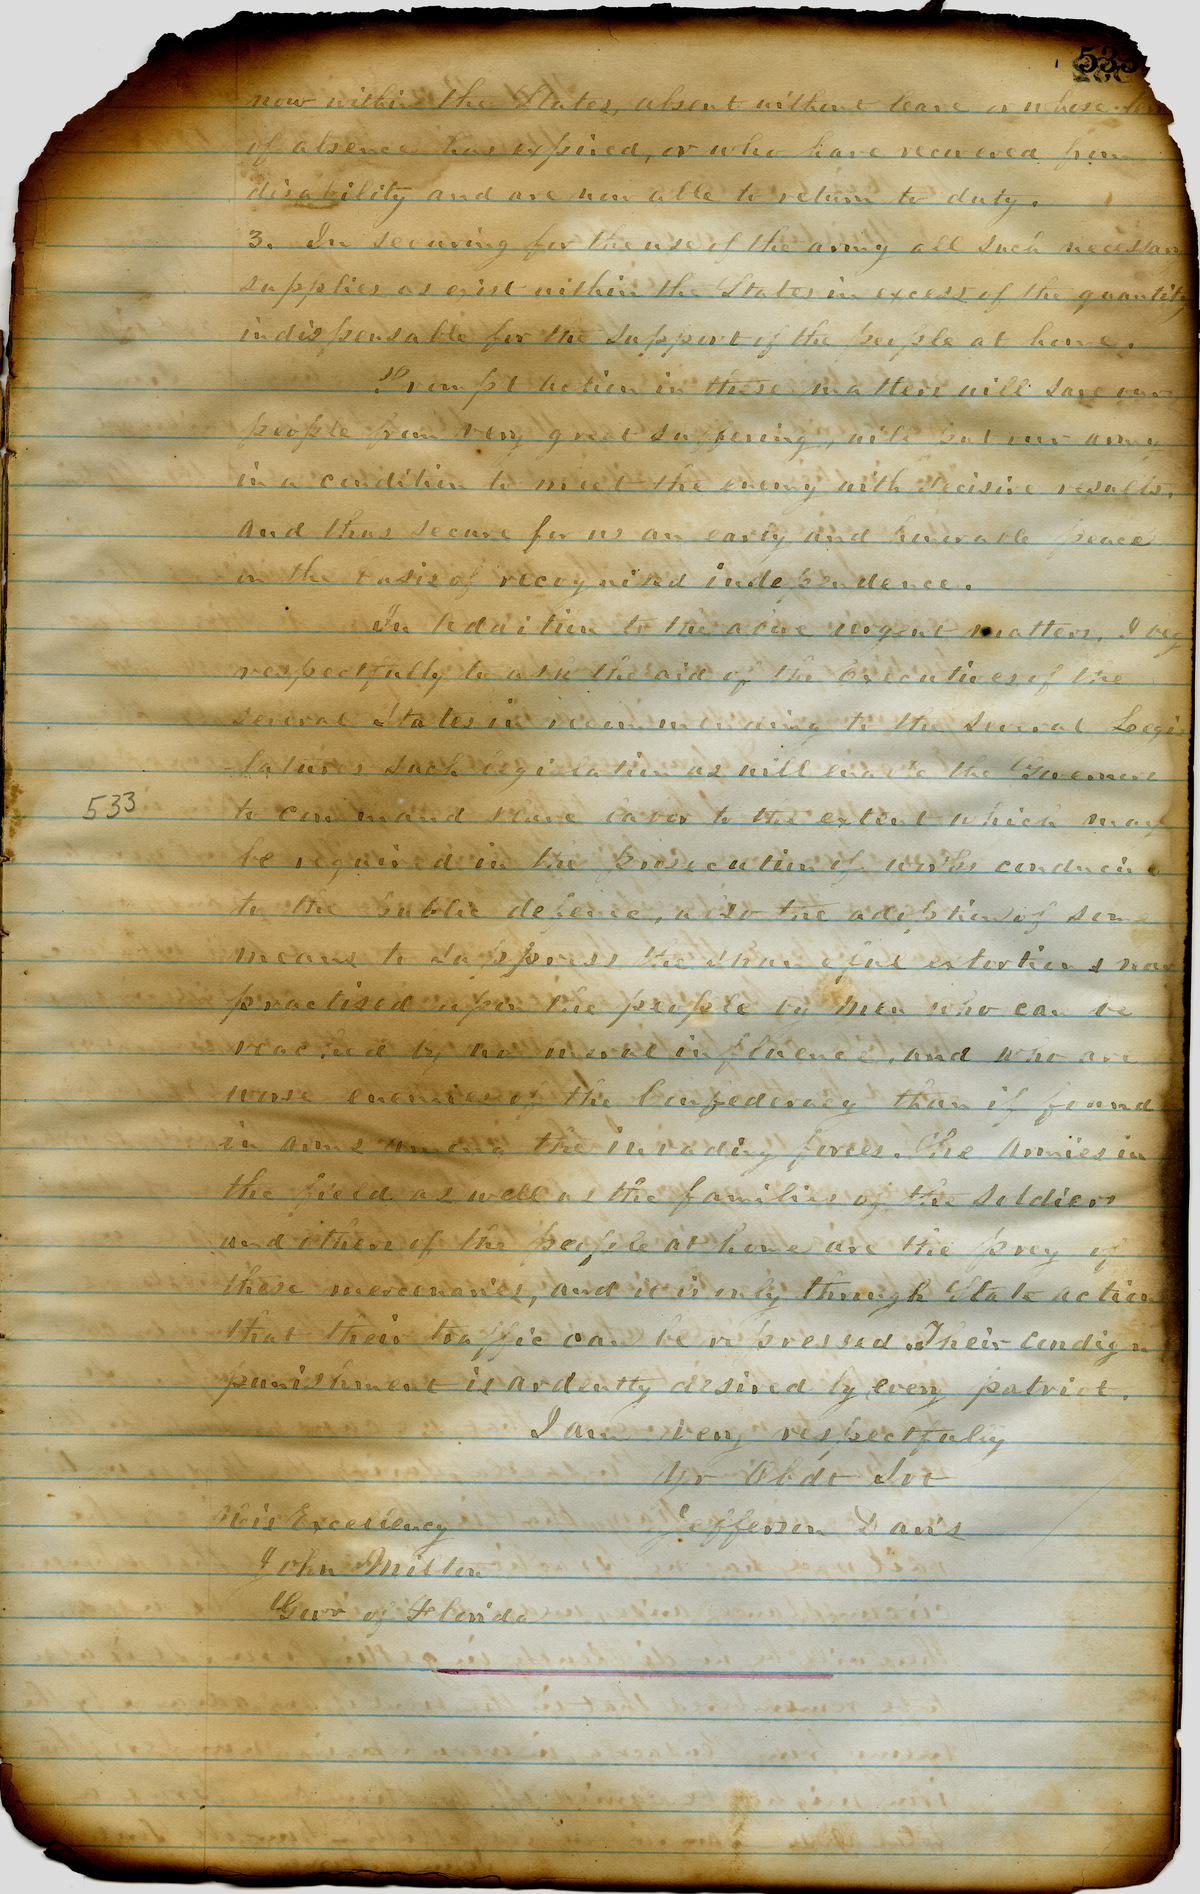 533
now within the States, absent without leave or whose
of absence has expired, or who have recovered from
disability and are now able to return to duty.
3. In securing for the use of the army all such necessary
supplies as exist within the States in excess of the quantity
indispensable for the support of the people at home.
Prompt Action in these matters will save our
people from very great suffering, will put our army
in a condition to meet the enemy with decisive results,
and thus secure for us an early and honorable peace
on the basis of recognised independence.
In Addition to the above urgent matters, I beg
respectfully to ask the aid of the Executives of the
several States in recommending to the several Legis
-latures such legislation as will enable the Governors
533
to command slave labor to the extent which may
be required in the prosecution of works conducive
to the public defence, also the adoption of some
means to suppress the shameful extortions now
practised upon the people by men who can be
reached by no moral influence, and who are
worse enemies of the Confederacy than if found
in arms among the invading forces. The Armies in
the field as well as the families of the soldiers
and others of the people at home are the prey of
these mercenaries, and it is only through State action
that their traffic can be repressed. Their condign
punishment is ardently desired by every patriot.
I am very respectfully
Yr Obdt Svt
His Excellency Jefferson Davis
John Milton
Govr of Florida